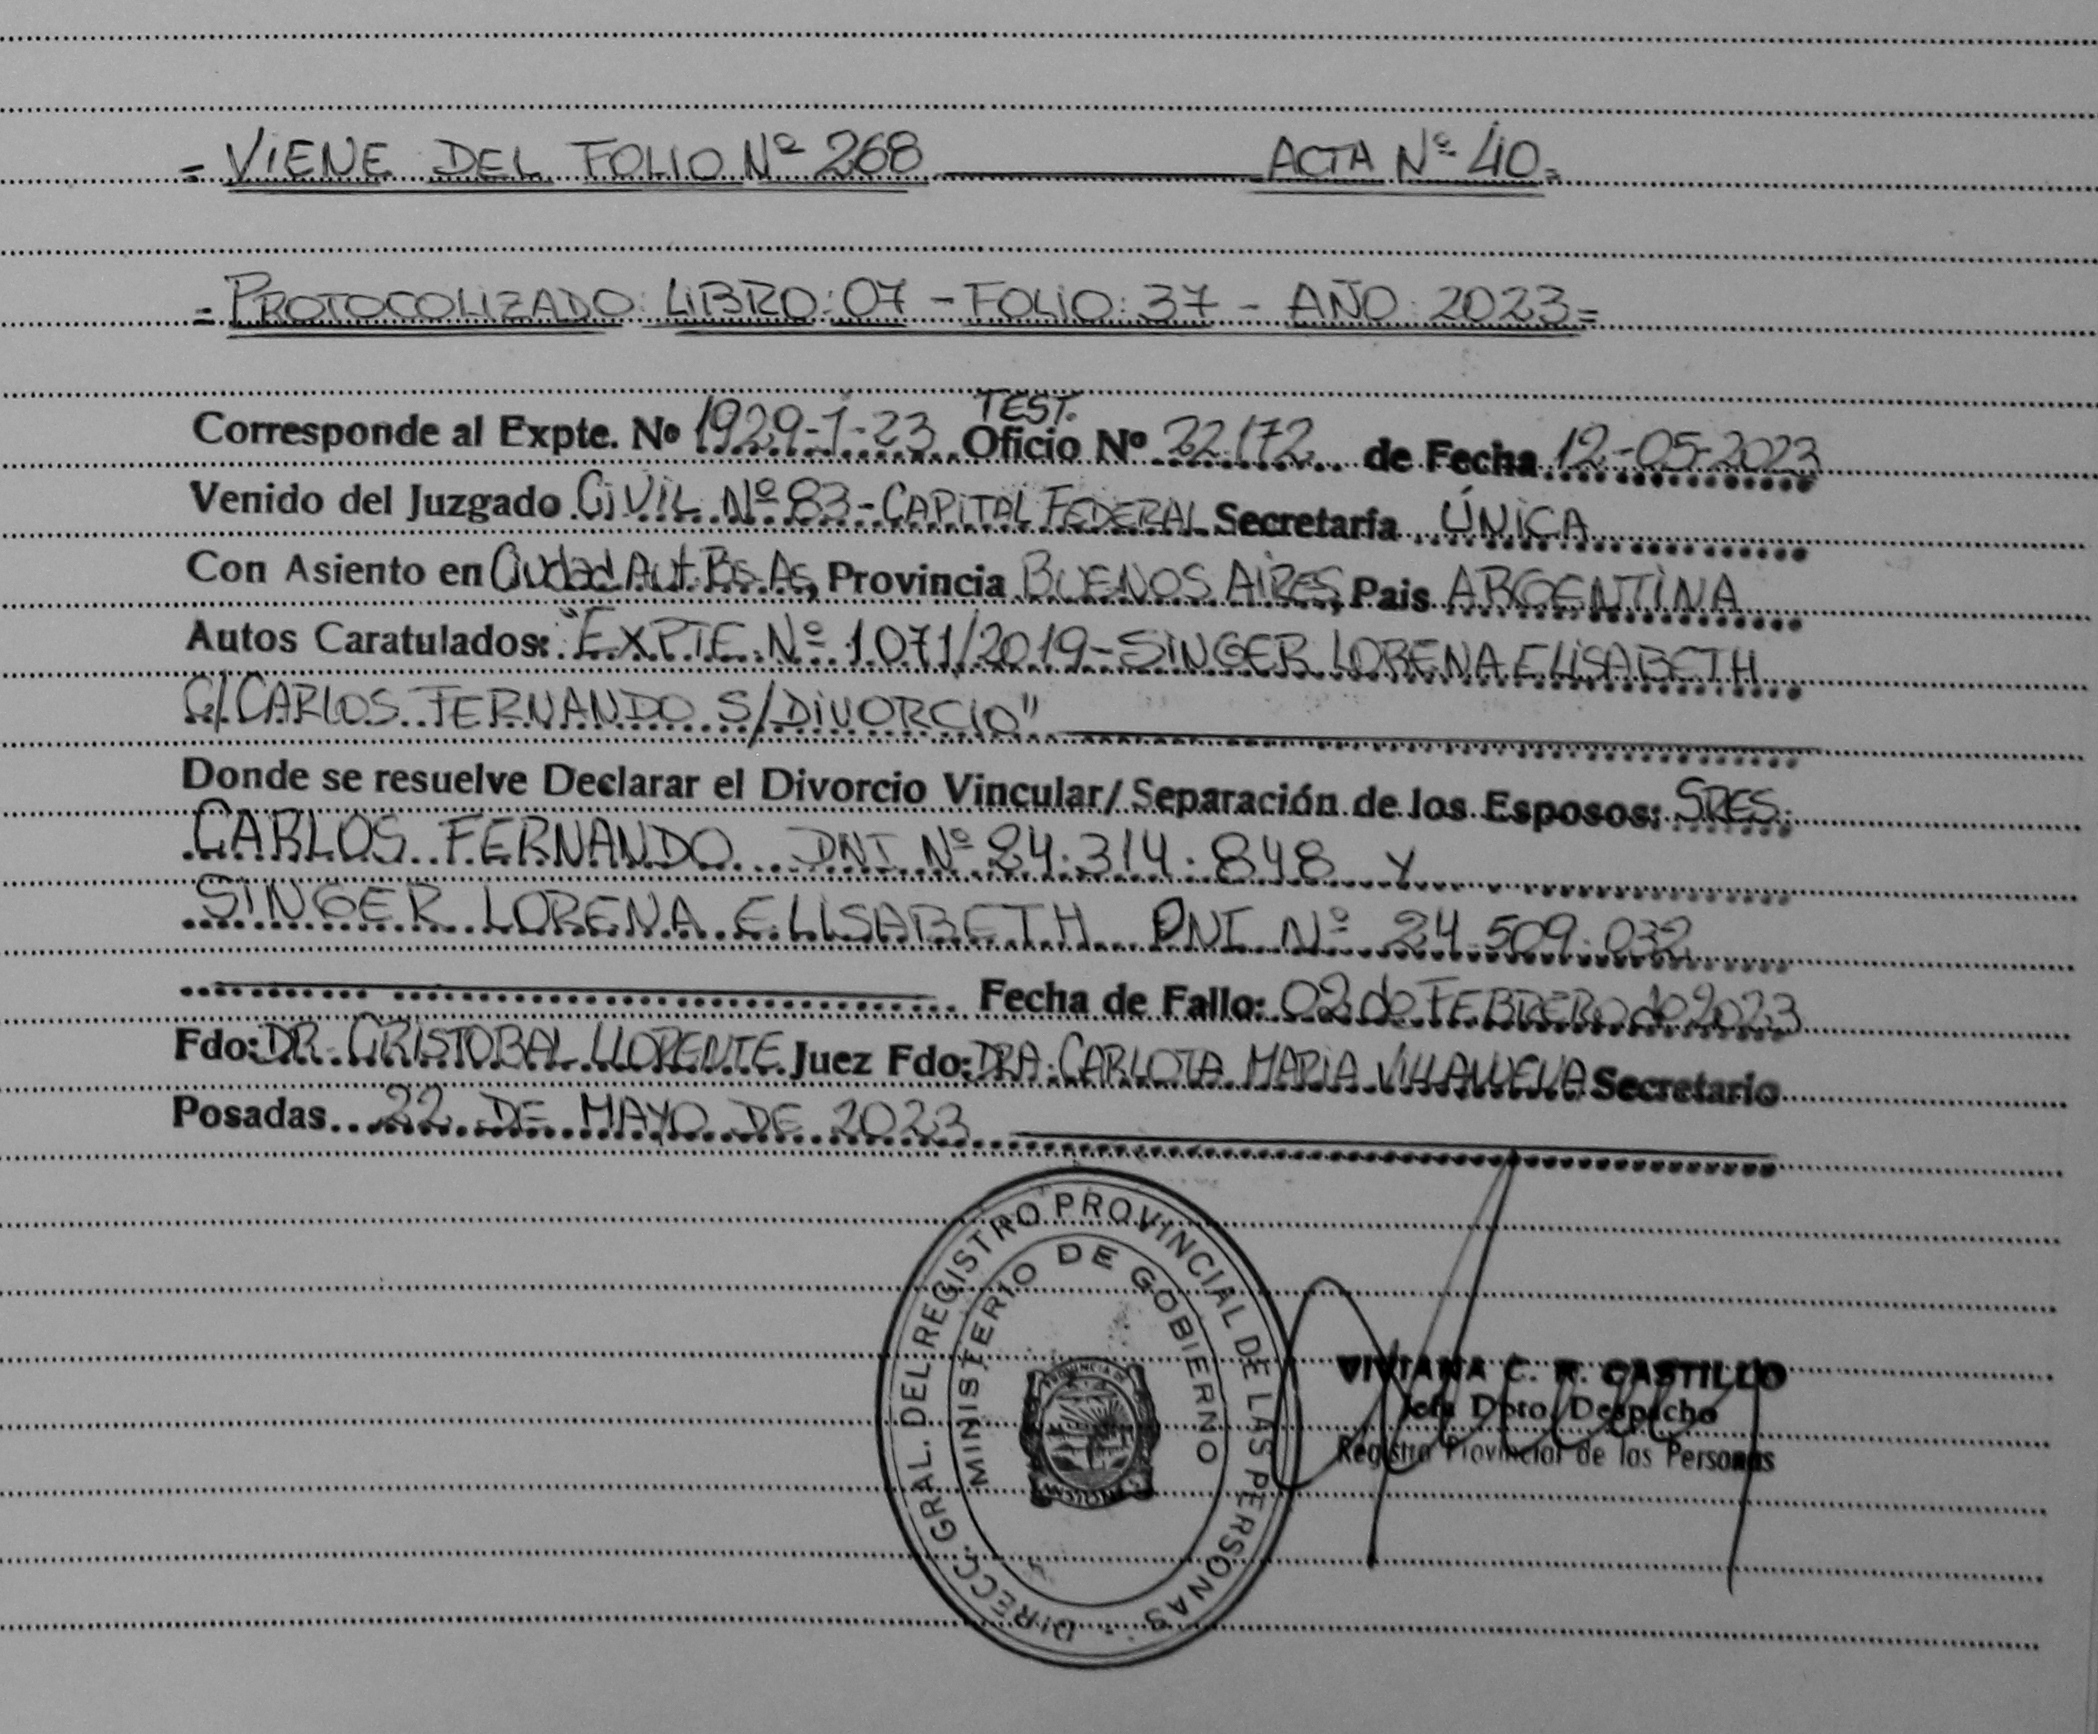 = VIENE DEL FOLIO Nº 268 ACTA Nº 40 =
= PROTOCOLIZADO: LIBRO: 07 - FOLIO: 37 - AÑO: 2023 =
TEST.
Corresponde al Expte. Nº 1929-1-23 Oficio Nº 22172 de Fecha 12-05-2023
Venido del Juzgado CIVIL Nº 83 - CAPITAL FEDERAL Secretaría ÚNICA
Con Asiento en Ciudad Aut. Bs. As, Provincia BUENOS AIRES, Pais ARGENTINA
Autos Caratulados: "EXPTE. Nº 1071/2019 - SINGER LORENA ELISABETH
C/ CARLOS FERNANDO S/DIVORCIO"
Donde se resuelve Declarar el Divorcio Vincular/ Separación de los Esposos: SRES.
CARLOS FERNANDO DNI Nº 24.314.848 Y
SINGER LORENA ELISABETH DNI Nº 24.509.032
Fecha de Fallo: 02 de FEBRERO de 2023
Fdo: DR. CRISTOBAL LLORENTE Juez Fdo: DRA. CARLOTA MARIA VILLANUEVA Secretario
Posadas 22 DE MAYO DE 2023
DIRECC. GRAL. DEL REGISTRO PROVINCIAL DE LAS PERSONAS
MINISTERIO DE GOBIERNO
PROVINCIA DE
MISIONES
VIVIANA C. R. CASTILLO
Jefa Dpto. Despacho
Registro Provincial de las Personas